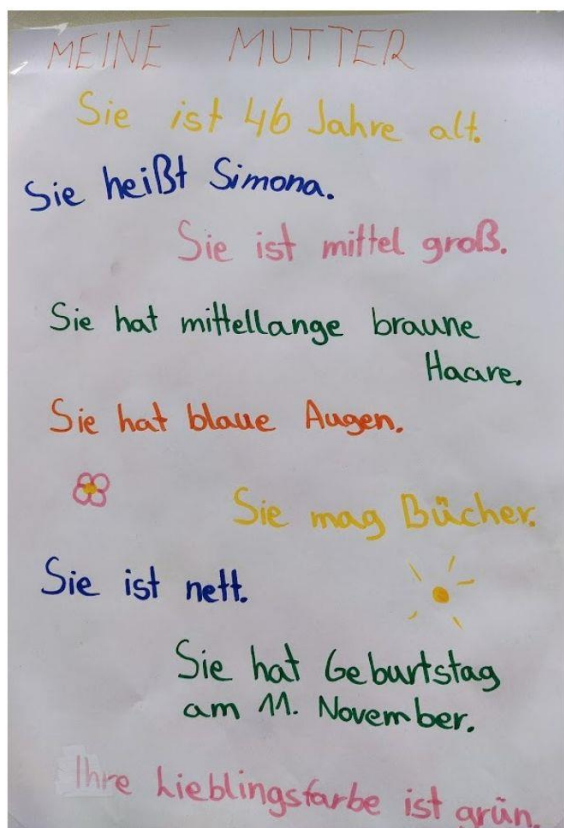 MEINE MUTTER
Sie ist 46 Jahre alt.
Sie heißt Simona.
Sie ist mittel groß.
Sie hat mittellange braune
Haare.
Sie hat blaue Augen.
Sie mag Bücher.
Sie ist nett.
Sie hat Geburtstag
am 11. November.
Ihre Lieblingsfarbe ist grün.